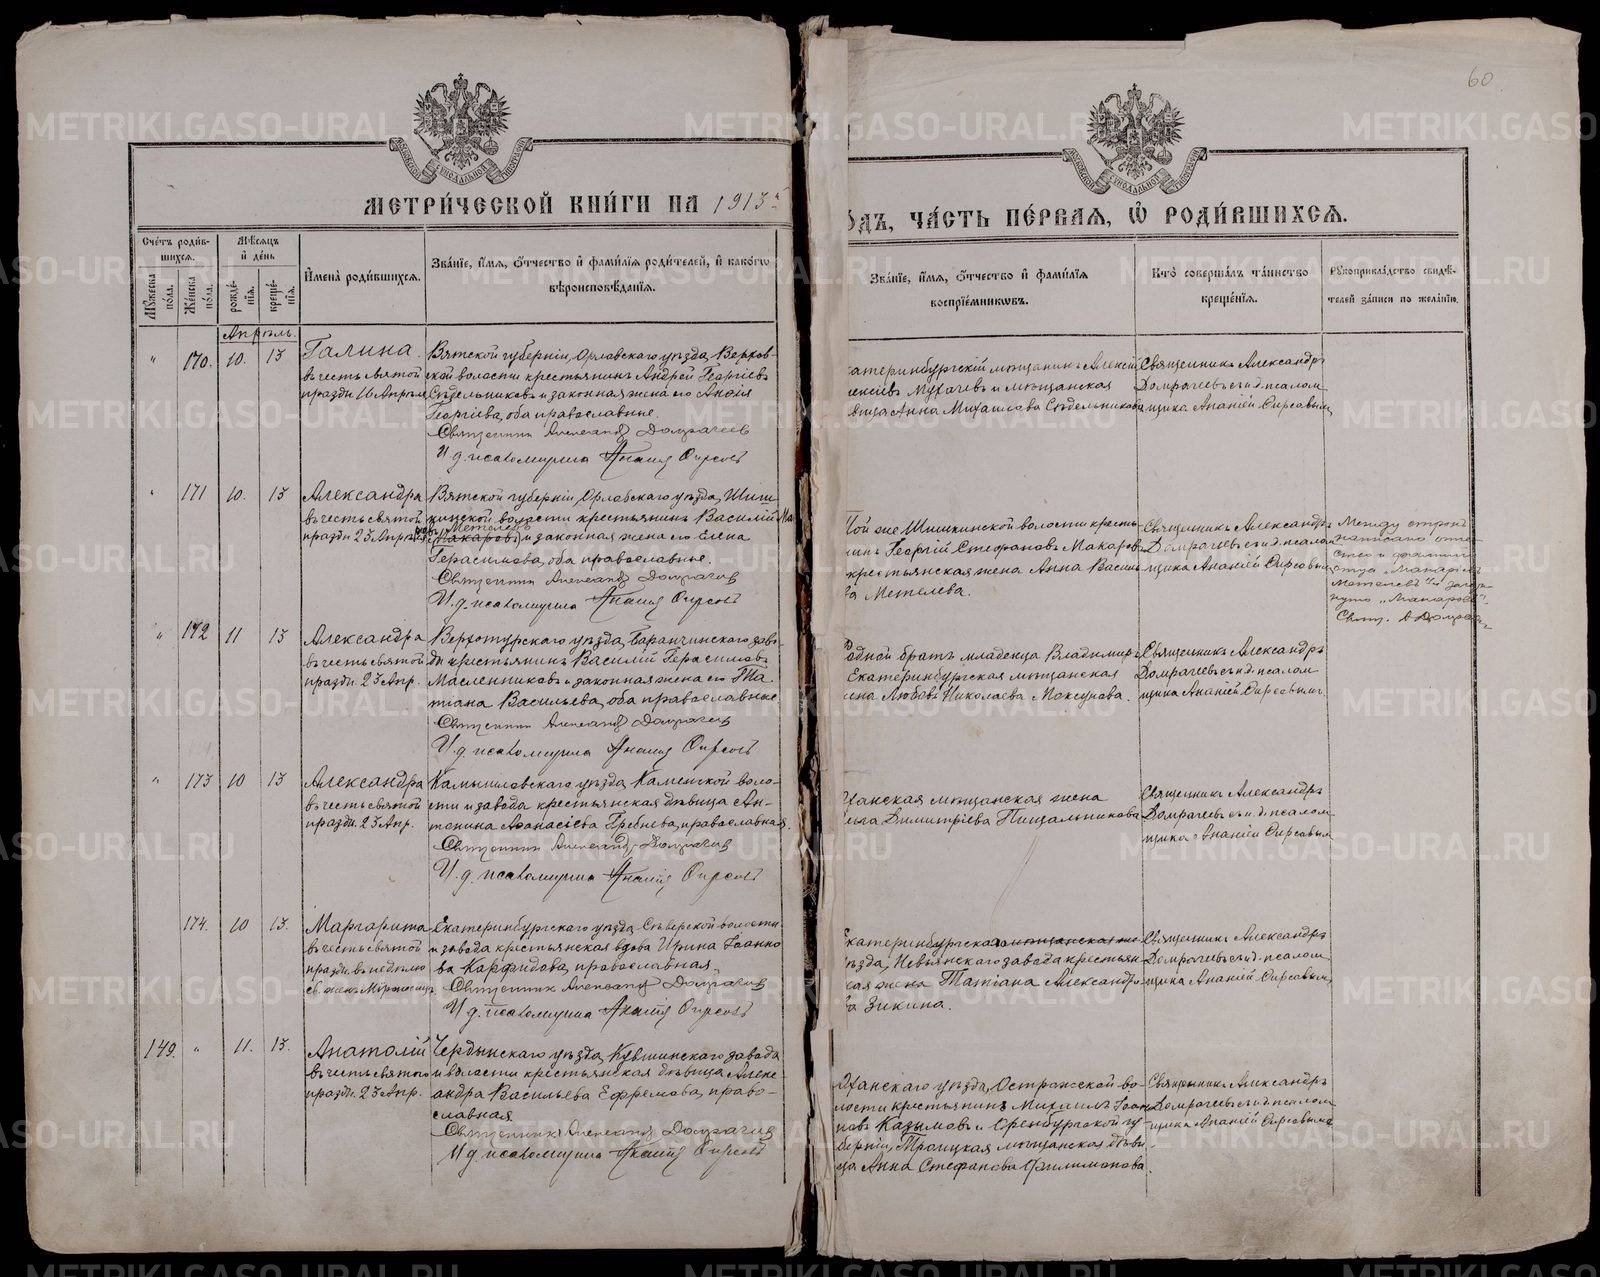 60
МЕТРИ́ЧЕСКОЙ КНИ́ГИ НА 1913
ОДЪ, ЧА́СТЬ ПЕ́РВАЯ, Ѡ РОДИ́ВШИХСѦ.
Сче́тъ роди́в-
шихся.
Мѣсяцъ
и де́нь
Мꙋжеска по́ла.
Же́нска по́ла.
рожде́нїѧ.
креще́нїѧ.
И҆мена̀ роди́вшихся.
Зва́нїе, и҆́мѧ, ѻ҆́тчество и҆ фамѝлїѧ роди́телей, и҆ како́гѡ
вѣроисповѣ́данїѧ.
Зва́нїе, и҆́мѧ, ѻ҆́тчество и҆ фамѝлїѧ
воспрїе́мникѡвъ.
Кто̀ соверша́лъ та́инство
креще́нїѧ.
Рꙋкоприкла́дство свидѣ́-
телей за́писи по жела́нїю.
Апрѣль
" 170. 10. 13 Галина
въ честь святой
празд. 16 Апрѣля
Вятской губерніи, Орловскаго уѣзда, Верхов-
ской волости крестьянинъ Андрей Георгіевъ
Сѣдельниковъ и законная жена его Анфія
Георгіева, оба православные.
Священникъ Александръ Домрачевъ
И. д. псаломщика Ананій Фирсовъ
катеринбургскій мѣщанинъ Алексій
лексіевъ Мухачевъ и мѣщанская
вица Анна Михаилова Сѣдельникова
Священникъ Александръ
Домрачевъ съ и.д. псалом-
щика Ананіей Фирсовымъ
" 171 10. 13 Александра
въ честь святой
празд. 23 Апр.
Вятской губерніи, Орловскаго уѣзда, Шиш-
кинской волости крестьянинъ Василій Ма
Метелевъ
Макаровъ и законная жена его Елена
Герасимова, оба православные.
Священникъ Александръ Домрачевъ
И. д. псаломщика Ананій Фирсовъ
Той же Шишкинской волости кресть-
нинъ Георгій Стефановъ Макаровъ
крестьянская жена Анна Василь
ва Метелева.
Священникъ Александръ
Домрачевъ съ и.д. псалом-
щика Ананіей Фирсовымъ
Между строкъ
написано отче-
ство и фамилія
отца "Макаріевъ
Метелевъ" и зачер-
кнуто "Макаровъ".
Свящ. А. Домрачевъ
" 172 11 13 Александра
въ честь святой
празд. 23 Апр.
Верхотурскаго уѣзда, Баранчинскаго заво-
да крестьянинъ Василій Герасимовъ
Масленниковъ и законная жена его Та
тіана Васильева, оба православные.
Священникъ Александръ Домрачевъ
И. д. псаломщика Ананій Фирсовъ
Родной братъ младенца Владимиръ
Екатеринбургская мѣщанская
жена Любовь Николаева Максунова.
Священникъ Александръ
Домрачевъ съ и.д. псалом-
щика Ананіей Фирсовымъ.
" 173 10 13 Александра
въ честь святой
празд. 23 Апр.
Камышловскаго уѣзда, Каменской воло-
сти и завода крестьянская дѣвица Ан-
тонина Аѳанасіева Гребнева, православная.
Священникъ Александръ Домрачевъ
И. д. псаломщика Ананій Фирсовъ
мѣщанская жена
Димитріева Пищальникова
Священникъ Александръ
Домрачевъ съ и.д. псалом-
щика Ананіей Фирсовымъ
174. 10 13. Маргарита
въ честь святой
празд. въ недѣлю
св. жен. Мироносицъ
Екатеринбургскаго уѣзда, Сѣверской волости
и завода крестьянская вдова Ирина Іоанно
ва Карфидова, православная.
Священникъ Александръ Домрачевъ
И. д. псаломщика Ананій Фирсовъ
Екатеринбургскаго мѣщанская же
уѣзда, Невьянскаго завода крестьян
кая жена Татіана Александро
ва Зыкина.
Священникъ Александръ
Домрачевъ съ и.д. псалом-
щика Ананіей Фирсовымъ
149. " 11. 13. Анатолій
въ честь святого
празд. 23 Апр.
Чердынскаго уѣзда, Кувшинскаго завода
и волости крестьянская дѣвица Алекс-
андра Васильева Ефремова, право-
славная
Священникъ Александръ Домрачевъ
И. д. псаломщика Ананій Фирсовъ
Оханскаго уѣзда, Острожской во-
лости крестьянинъ Михаилъ Іоан
новъ Казымовъ и Оренбургской гу
берніи, Троицкая мѣщанская дѣви
ца Анна Стефанова Филимонова.
Священникъ Александръ
Домрачевъ съ и.д. псалом-
щика Ананіей Фирсовымъ.
METRIKI.GASO-URAL.RU